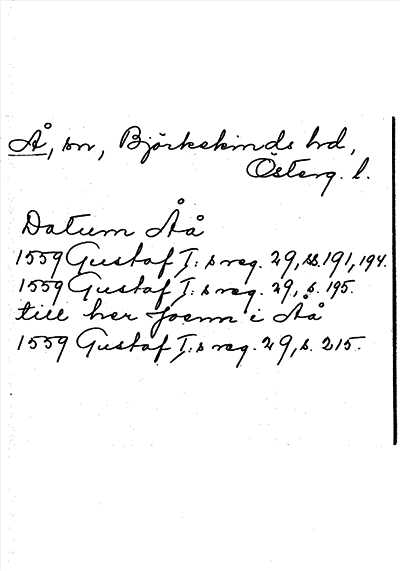 Å, sn, Björkekinds hd,
Österg. l.
Datum Åå
1559 Gustaf I:s reg. 29, ss. 191, 194.
1559 Gustaf I:s reg. 29, s. 195.
till her Joenn i Åå
1559 Gustaf I:s reg. 29, s. 215.